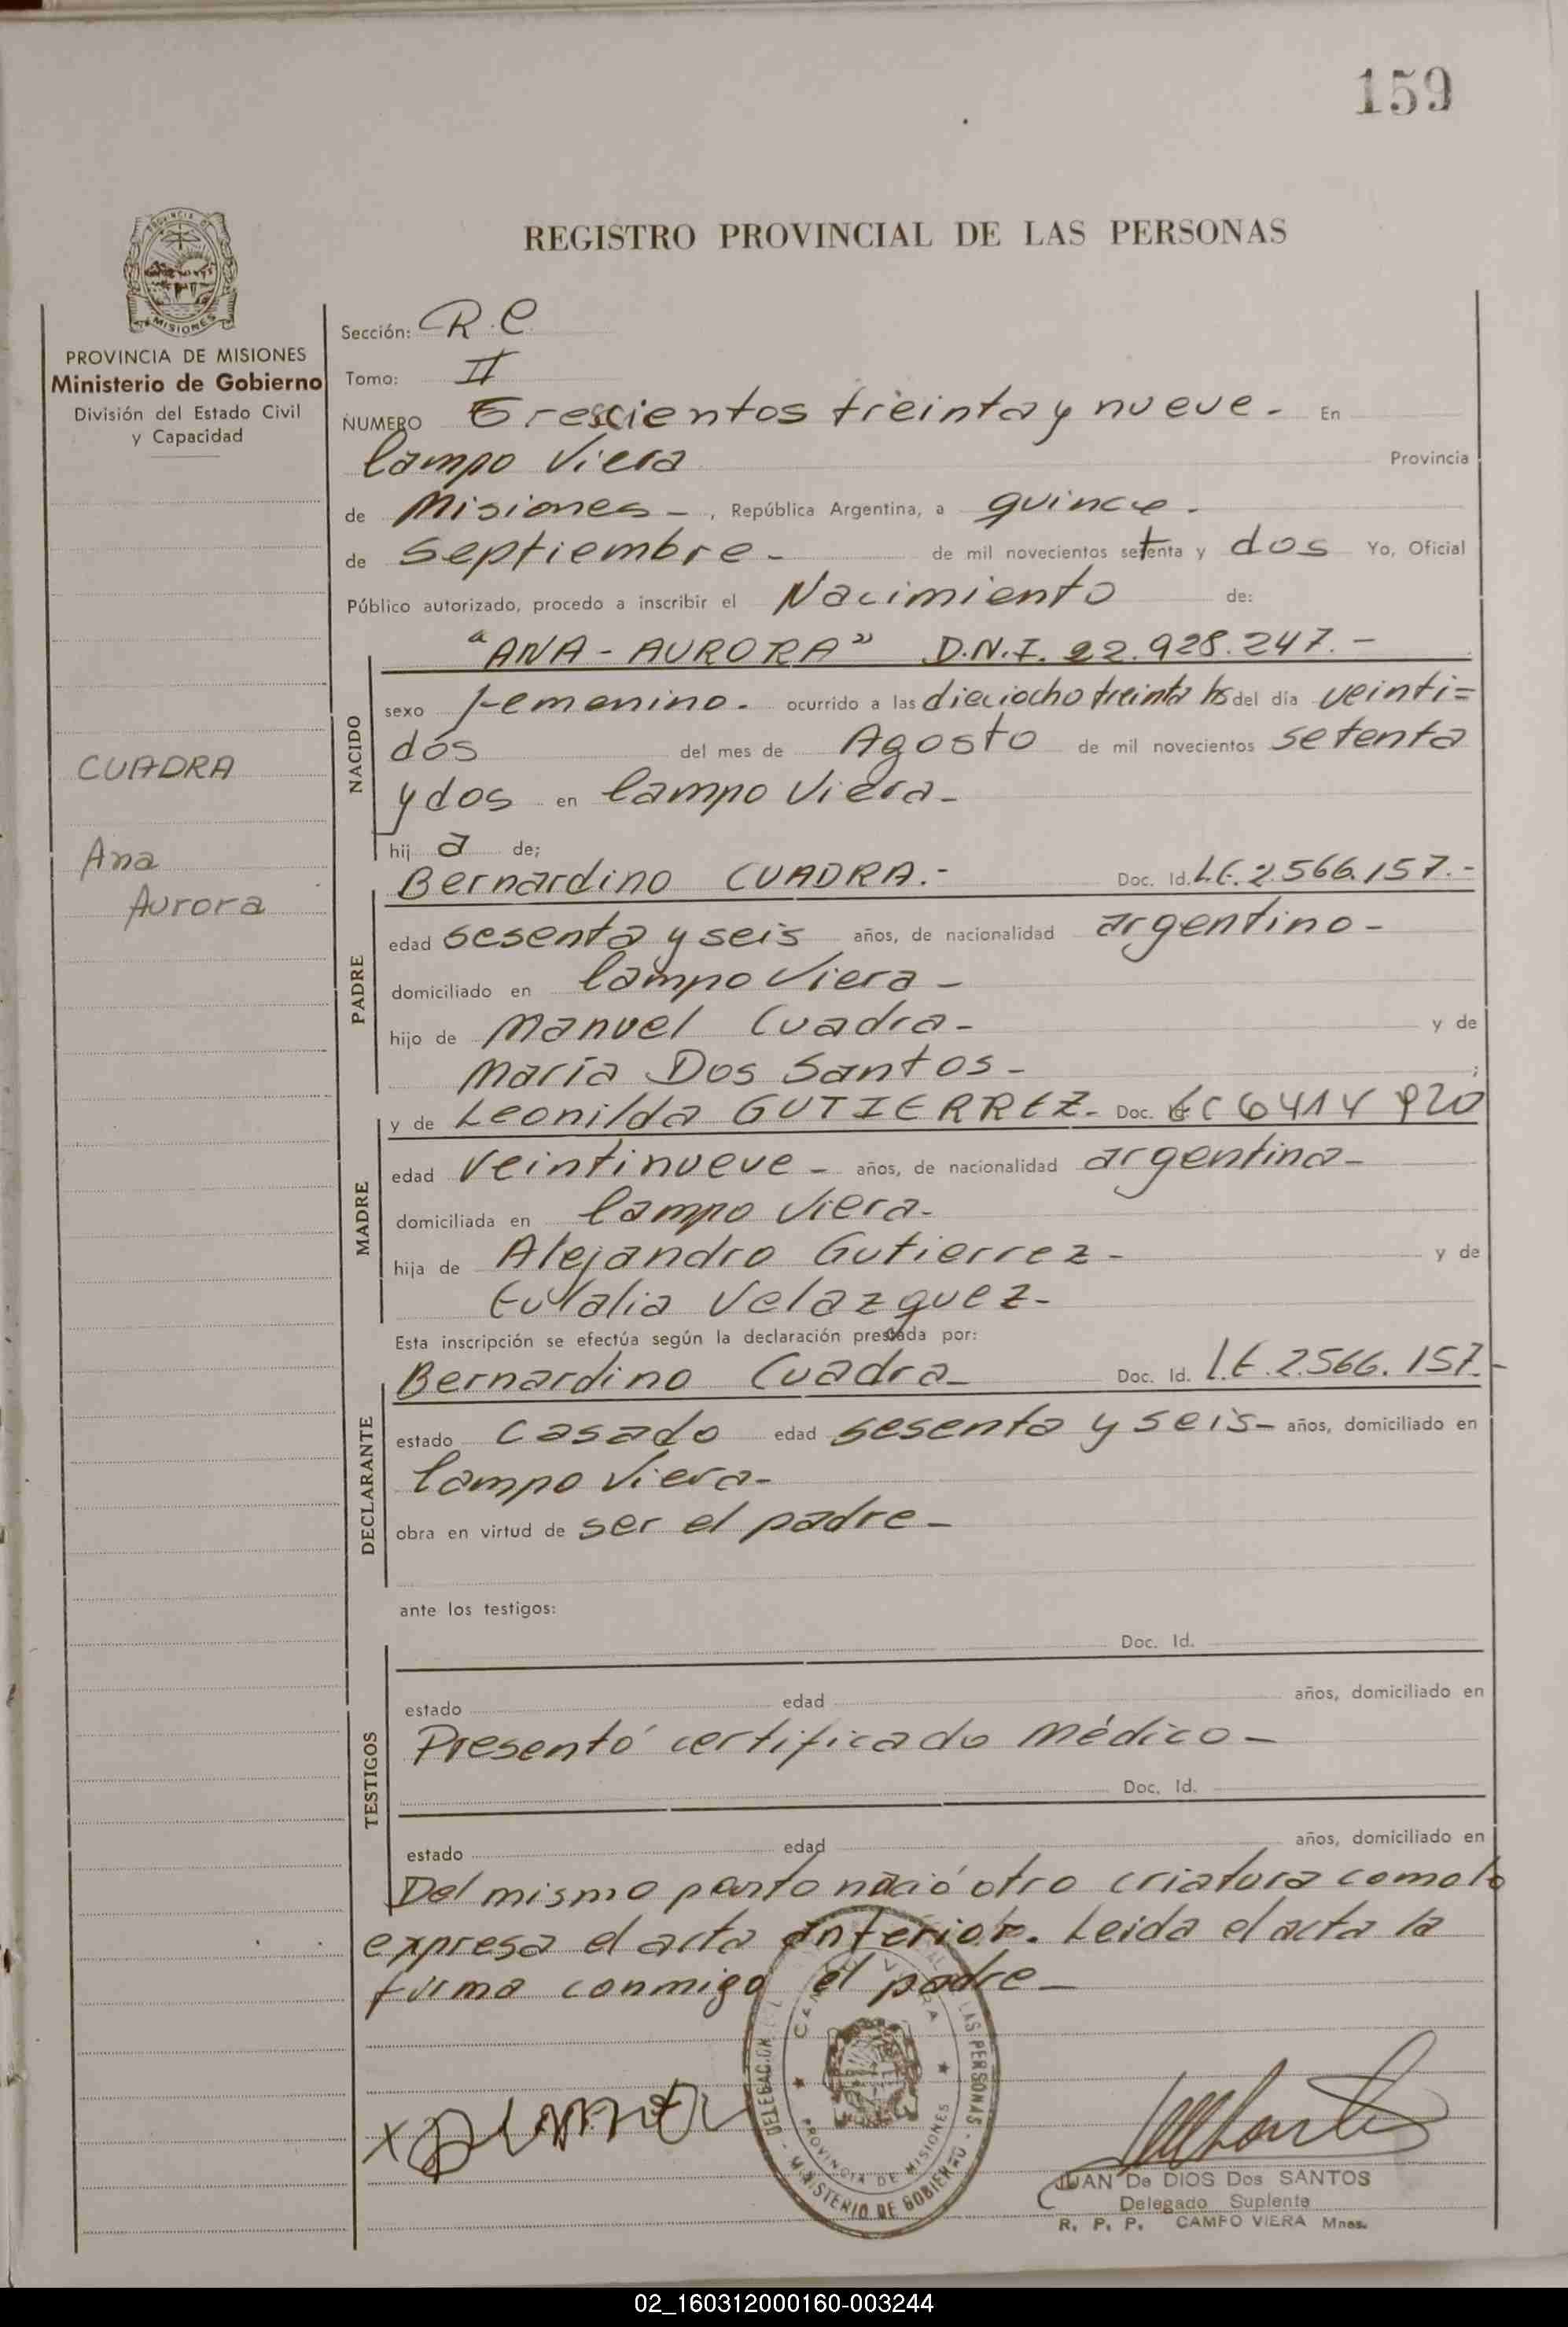 159
REGISTRO PROVINCIAL DE LAS PERSONAS
PROVINCIA
MISIONES
PROVINCIA DE MISIONES
Ministerio de Gobierno
División del Estado Civil
y Capacidad
CUADRA
Ana
Aurora
Sección: R.C.
Tomo: II
NUMERO Trescientos treinta y nueve.- En
Campo Viera Provincia
de Misiones -, República Argentina, a quince.-
de Septiembre.- de mil novecientos setenta y dos Yo, Oficial
Público autorizado, procedo a inscribir el Nacimiento de:
NACIDO
"ANA - AURORA" D.N.I. 22.928.247.-
sexo femenino.- ocurrido a las dieciocho treinta hs del día veinti=
dós del mes de Agosto de mil novecientos setenta
y dos en Campo Viera.-
hij a de;
PADRE
Bernardino CUADRA.- Doc. Id. L.E. 2.566.157.-
edad sesenta y seis años, de nacionalidad argentino.-
domiciliado en Campo Viera -
hijo de Manuel Cuadra.- y de
María Dos Santos.- ;
MADRE
y de Leonilda GUTIERREZ.- Doc. LC 6414920
edad veintinueve - años, de nacionalidad argentina.-
domiciliada en Campo Viera.-
hija de Alejandro Gutierrez - y de
Eulalia Velazquez.-
Esta inscripción se efectúa según la declaración prestada por:
DECLARANTE
Bernardino Cuadra.- Doc. Id. L.E. 2.566.157.-
estado casado edad sesenta y seis - años, domiciliado en
Campo Viera.-
obra en virtud de ser el padre -
ante los testigos:
TESTIGOS
Doc. Id.
estado edad años, domiciliado en
Presentó certificado médico -
Doc. Id.
estado edad años, domiciliado en
Del mismo parto nació otra criatura como lo
expresa el acta anterior. Leida el acta la
firma conmigo el padre -
DELEGACION LAS PERSONAS
CAMPO VIERA
PROVINCIA DE MISIONES
MINISTERIO DE GOBIERNO
JUAN De DIOS Dos SANTOS
Delegado Suplente
R. P. P. CAMPO VIERA Mnes.
02_160312000160-003244